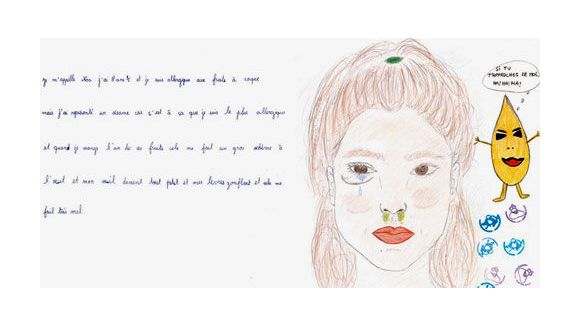 je m'appelle Inès j'ai 8 ans ½ et je suis allergique aux fruits à coque
mais j'ai représenté un sésame car c'est à ça que je suis le plus allergique
et quand je mange l'un de ces fruits cela me fait un gros œdème à
l'œil et mon œil devient tout petit et mes lèvres gonflent et cela me
fait très mal.
SI TU
T'APPROCHES DE MOI,
HA! HA! HA!